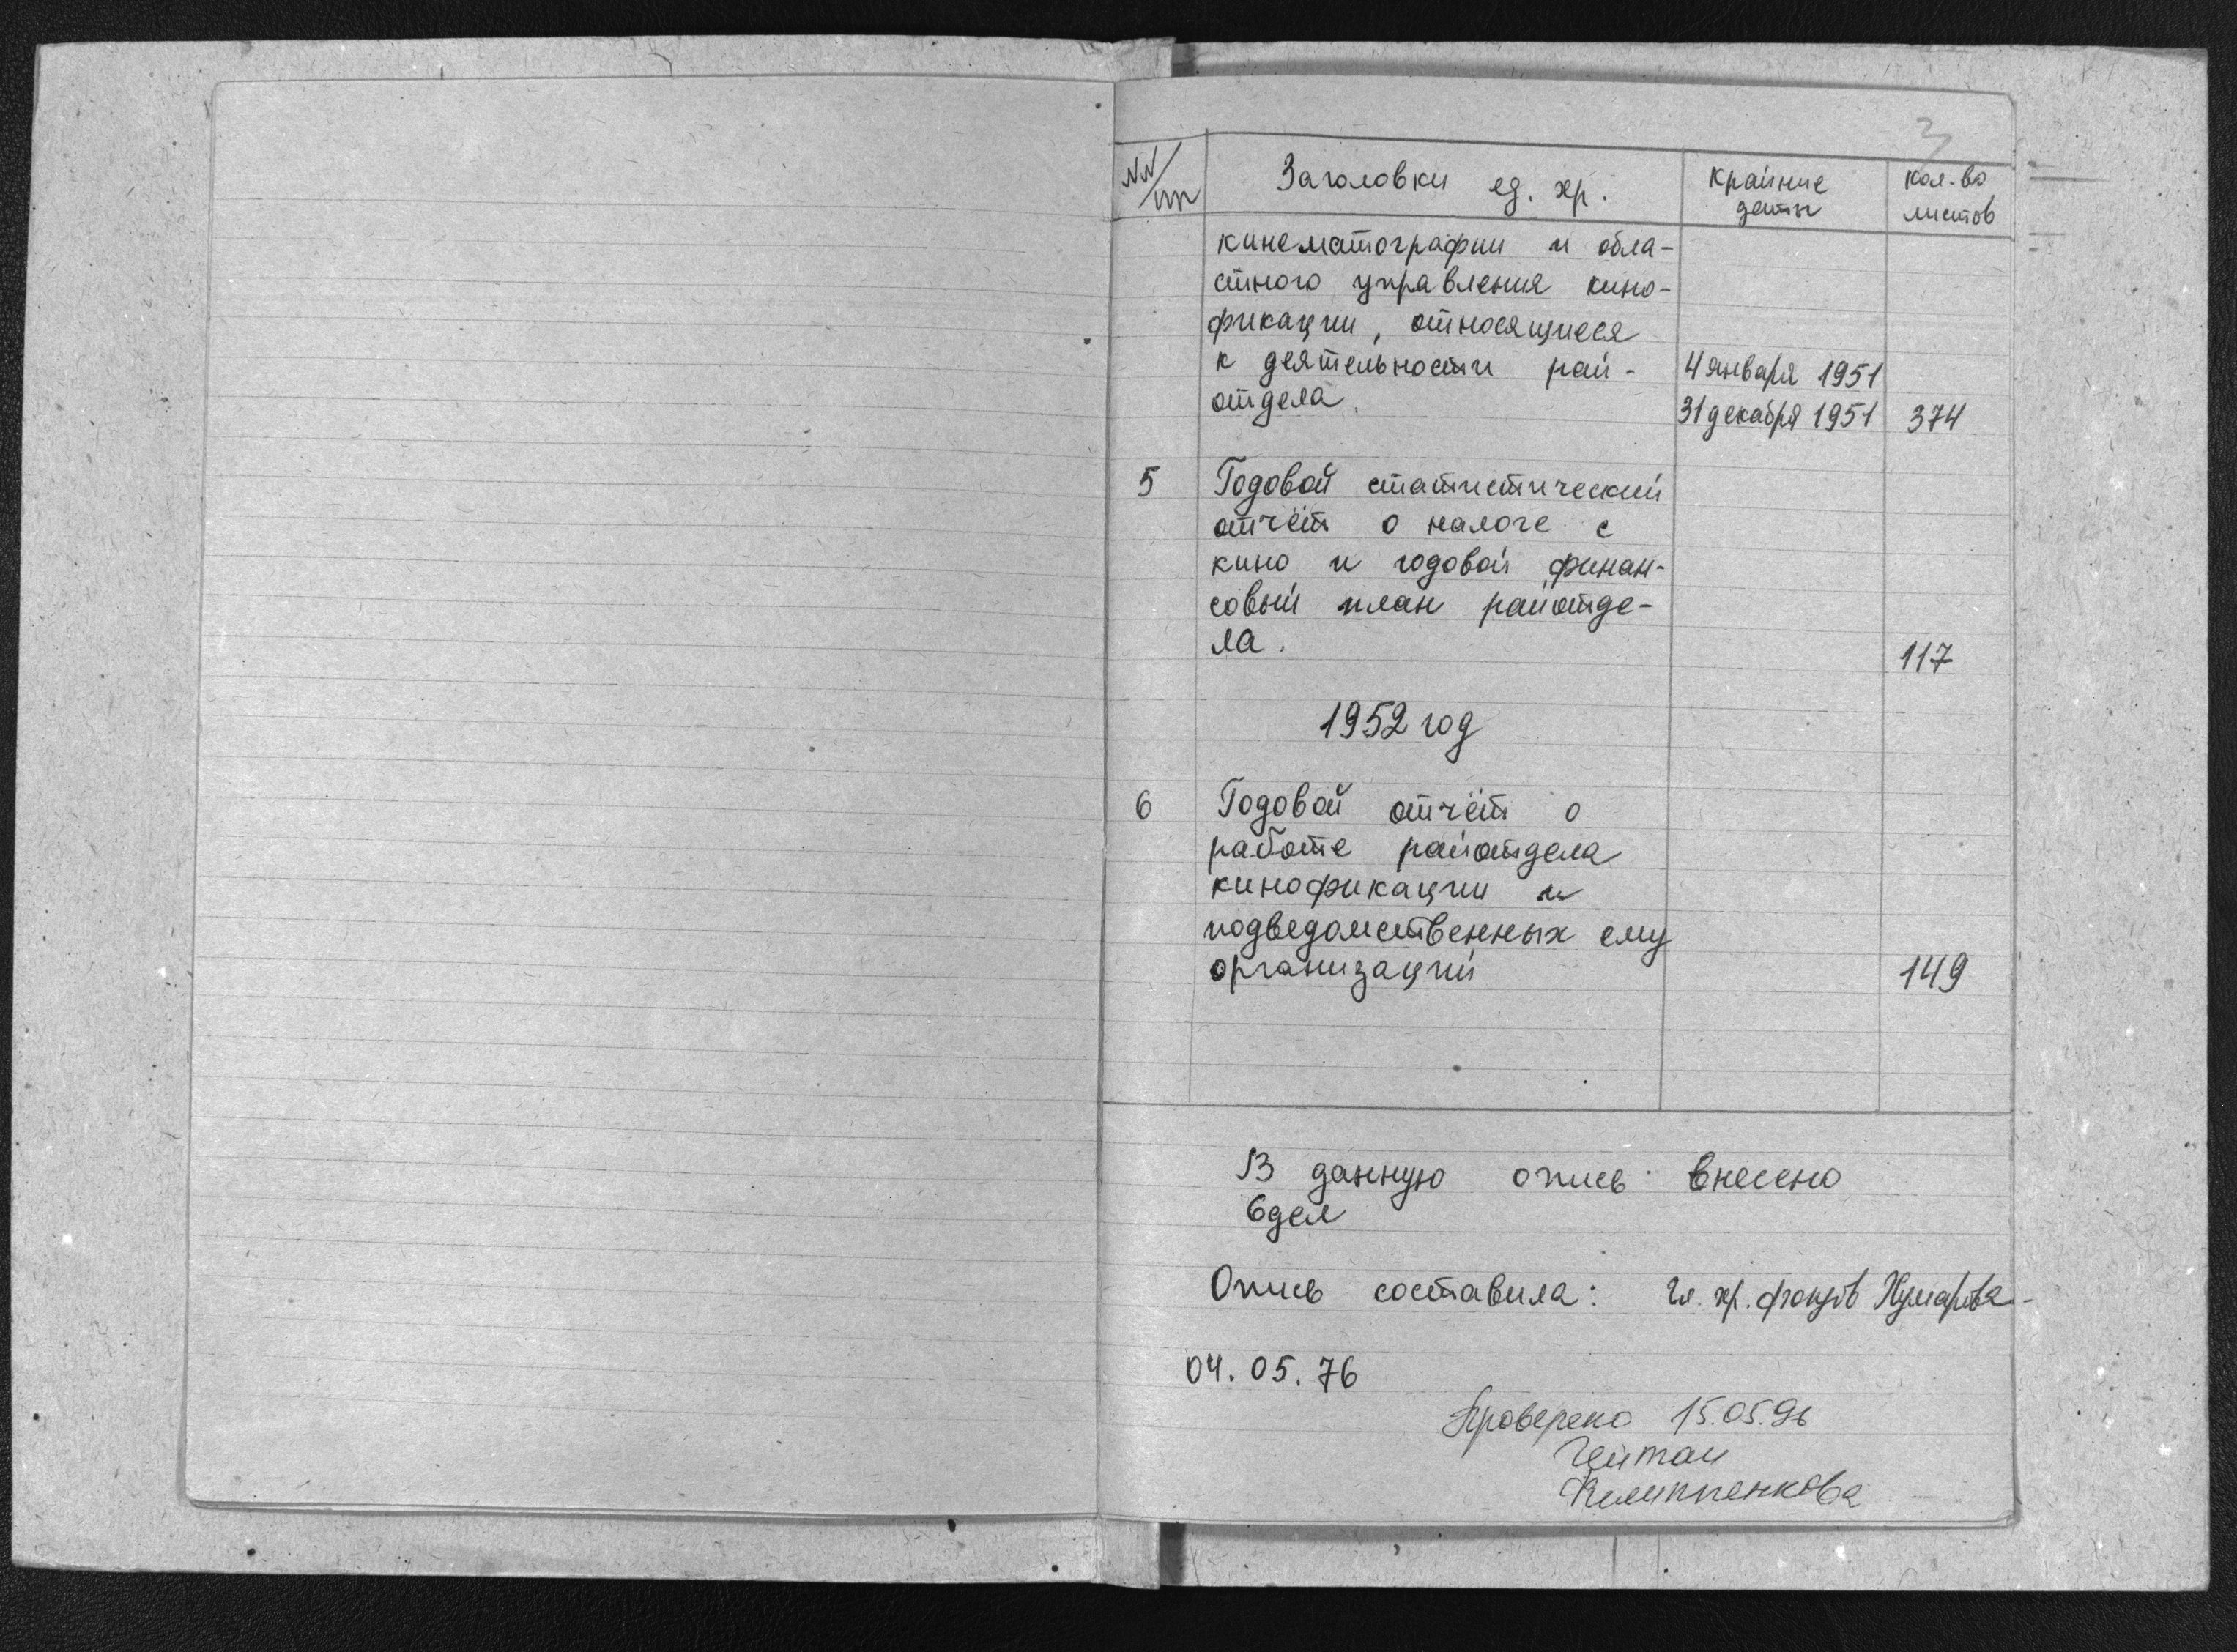 3
NN/пп Заголовки ед. хр. крайние даты кол-во листов
кинематографии и обла-
стного управления кино-
фикации, относящиеся
к деятельности рай- 4 января 1951
отдела. 31 декабря 1951 374
5 Годовой статистический
отчёт о налоге с
кино и годовой финан-
совый план райотде-
ла. 117
1952 год
6 Годовой отчёт о
работе райотдела
кинофикации и
подведомственных ему
организаций 149
В данную опись внесено
6 дел
Опись составила: гл. хр. фондов
04.05.76
Проверено 15.05.96